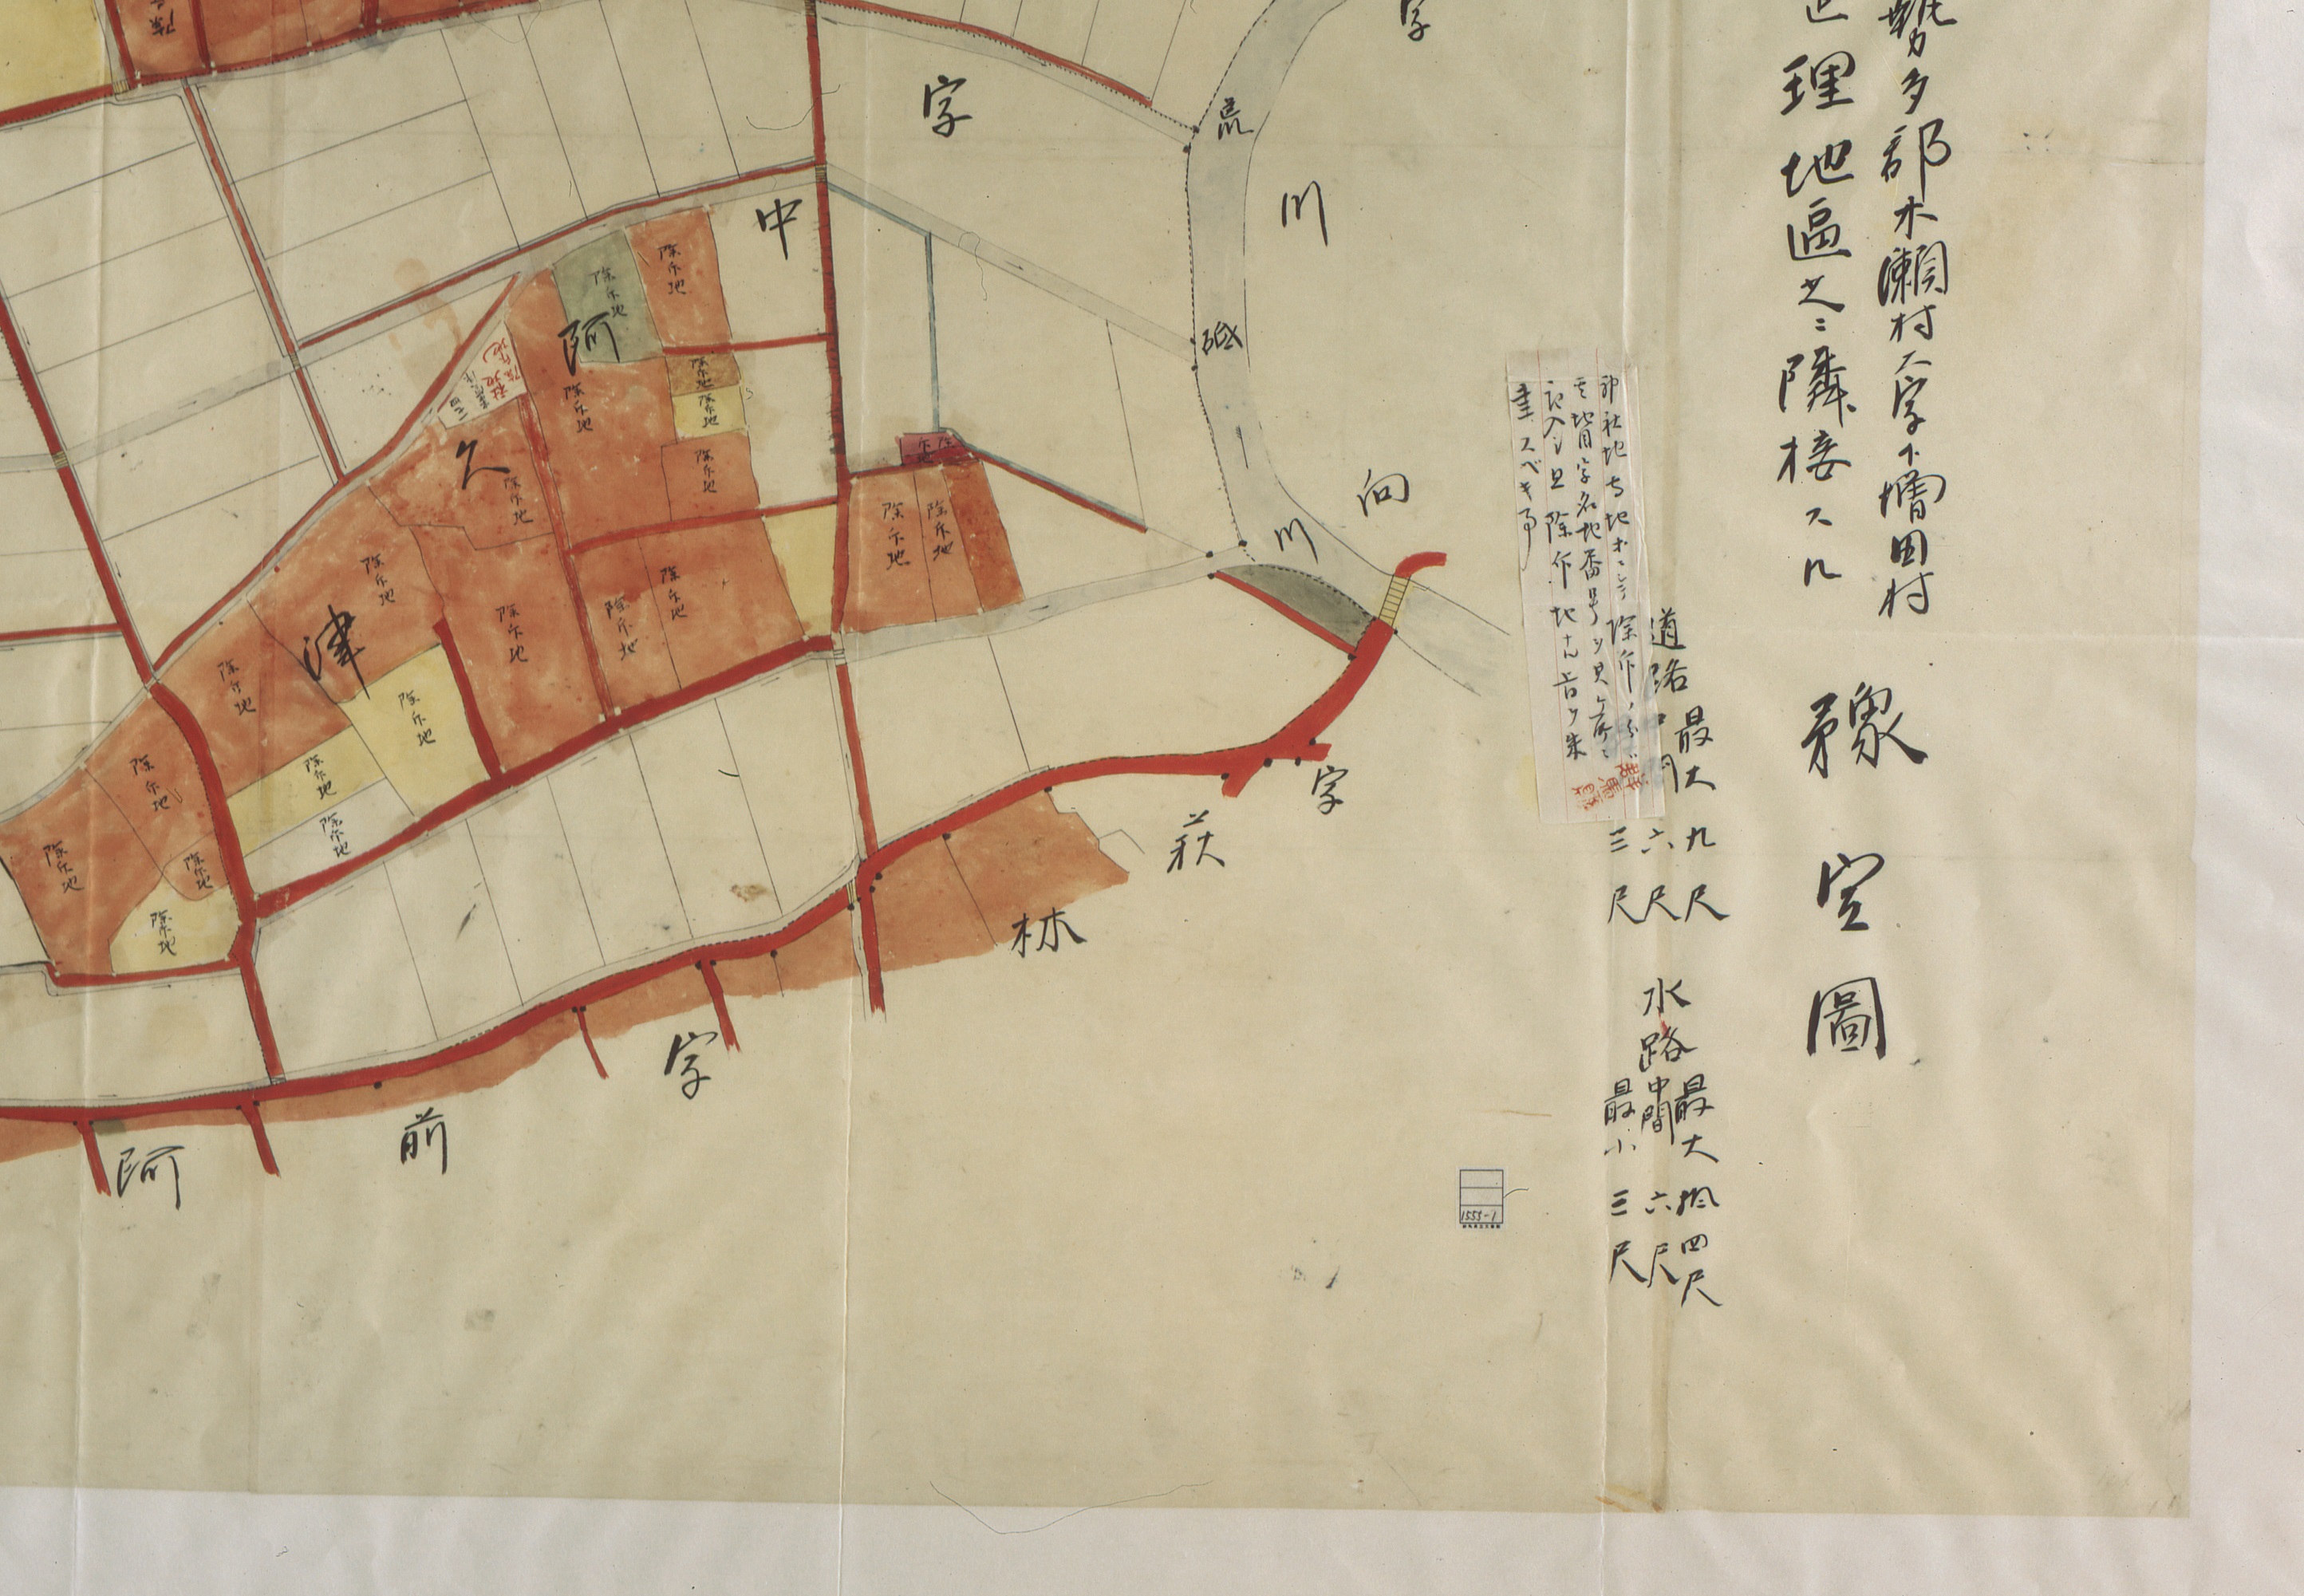 勢多郡木瀬村大字下増田村
理地區之ニ隣接スル
豫定圖
道路
最大九尺
六尺
三尺
水路
最大拾四尺
中間六尺
最小三尺
神社地寺地ホニシテ除作ノ分ハ
其地目字名地番号ヲ見ヶ所ニ
記入シ且除作地ナル旨ヲ朱
書スベキ事
字
荒
川
砥
川
向
字
中
阿
久
津
字
萩
林
字
前
阿
除作地
除作地
除作地
除作地
除作地
除作地
除作地
除作地
除作地
除作地
除作地
除作地
除作地
除作地
除作地
除作地
除作地
除作地
除作地
除作地
除作地
除作地
社地
除作地
1555-1